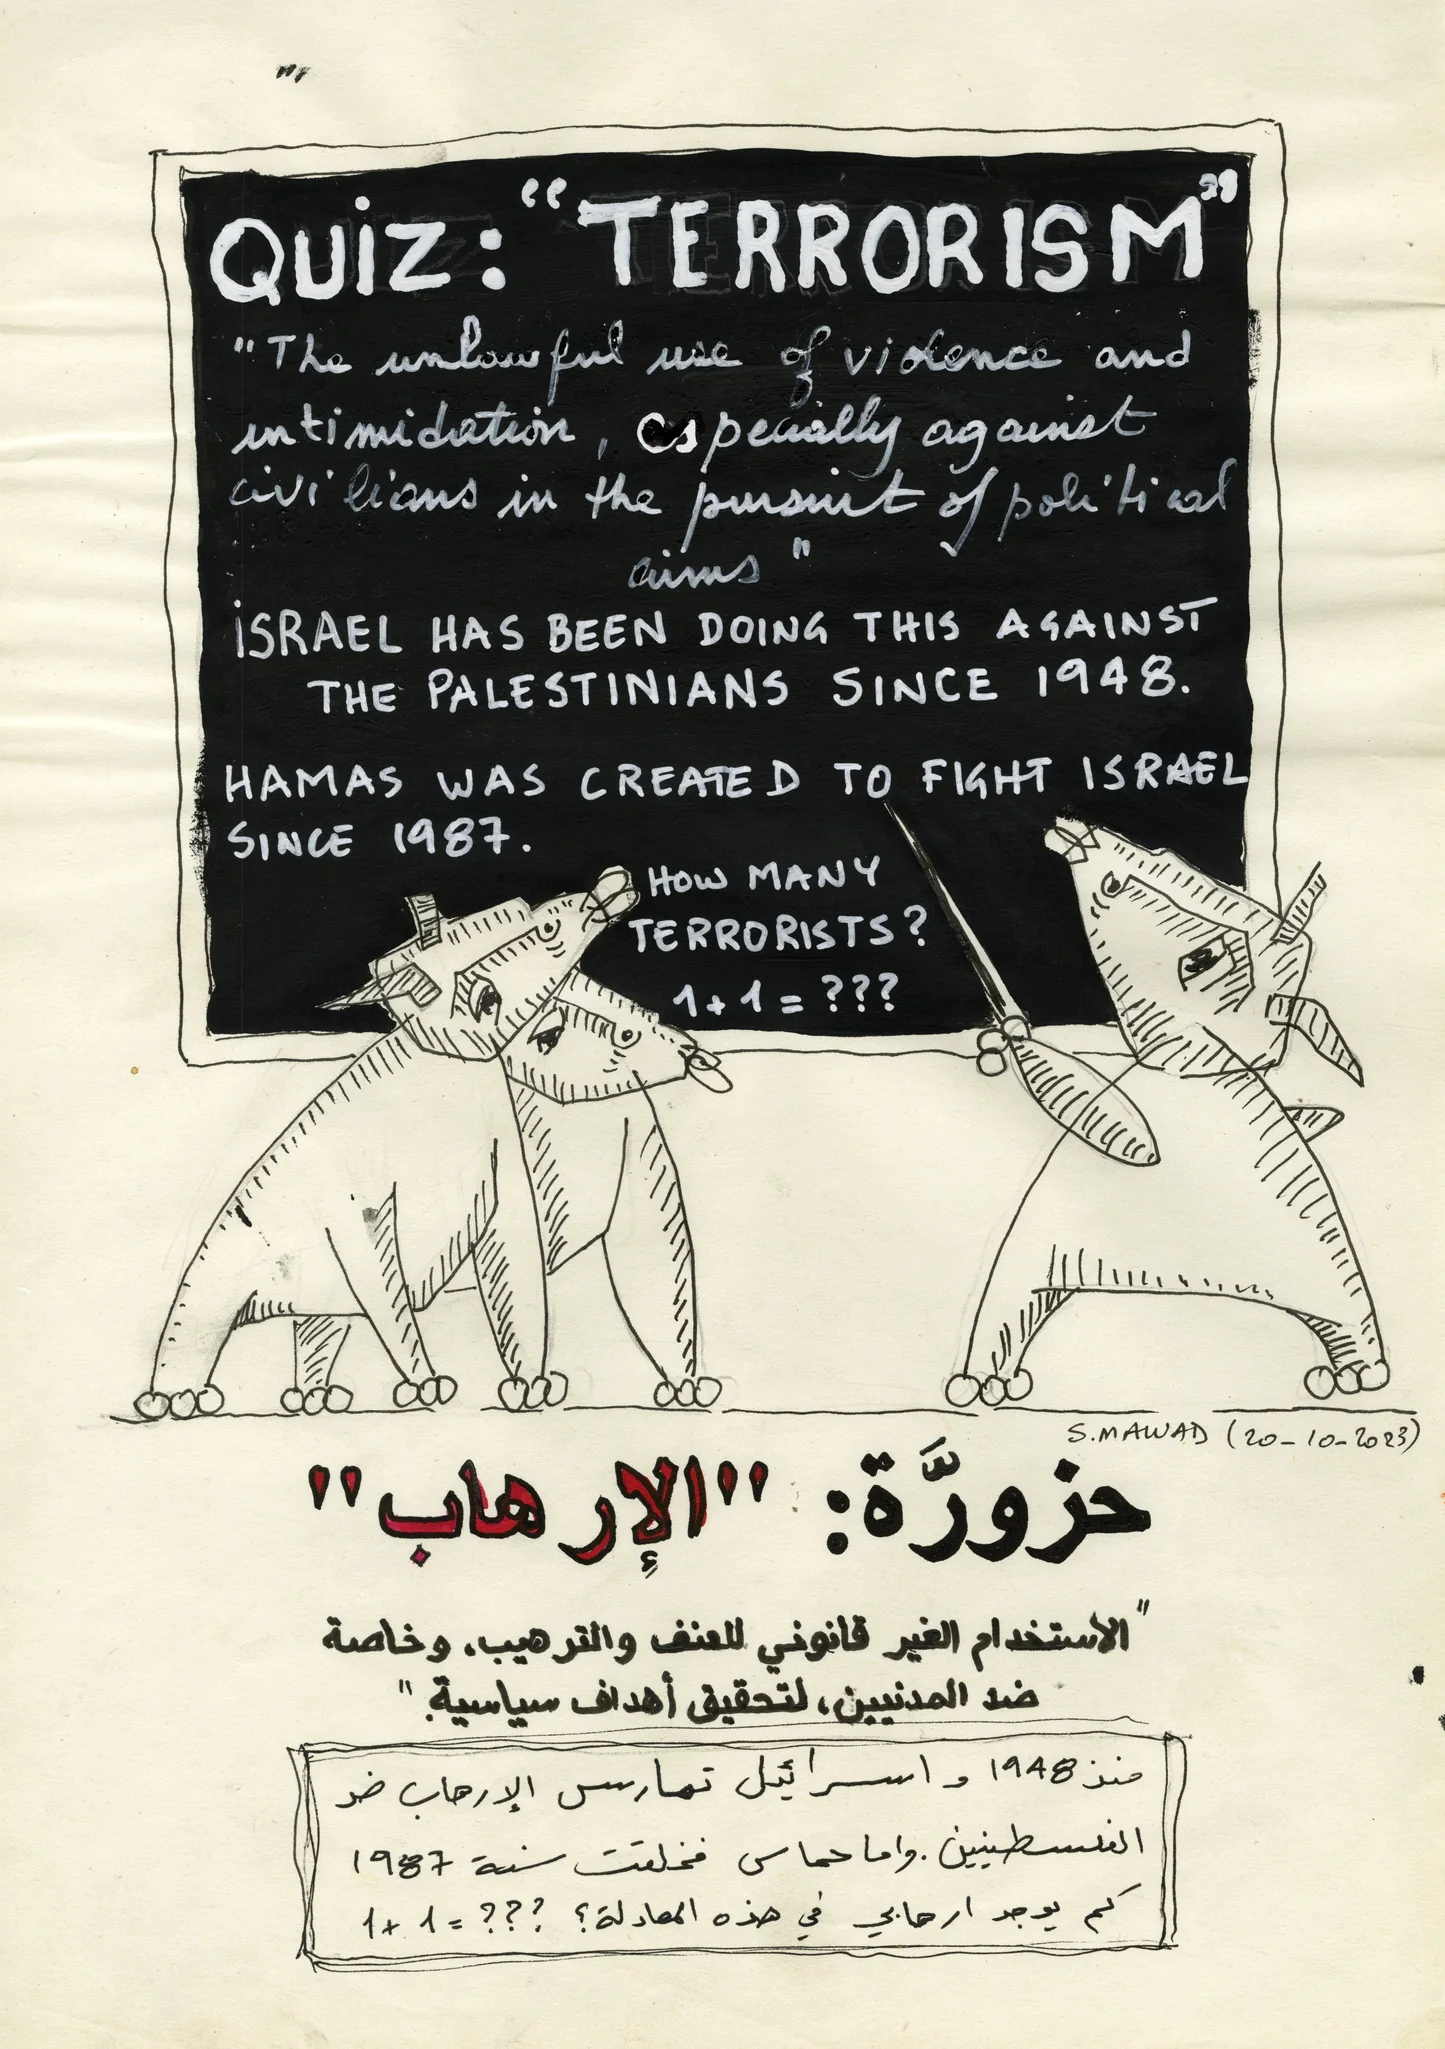 QUiZ: "TERRORISM"
"The unlawful use of violence and
intimidation, especially against
civilians in the pursuit of political
aims"
iSRAEL HAS BEEN DOING THIS AGAINST
THE PALESTINIANS SINCE 1948.
HAMAS WAS CREATED TO FIGHT ISRAEL
SINCE 1987.
HOW MANY
TERRORISTS?
1+1=???
S.MAWAD (20-10-2023)
حزورَّة: "الإرهاب"
"الاستخدام الغير قانوني للعنف والترهيب، وخاصة
ضد المدنيين، لتحقيق أهداف سياسية."
منذ 1948 و اسرائيل تمارس الإرهاب ضد
الفلسطينيين. واما حماس فخلقت سنة 1987
كم يوجد ارهابي في هذه المعادلة؟ ??? = 1 + 1